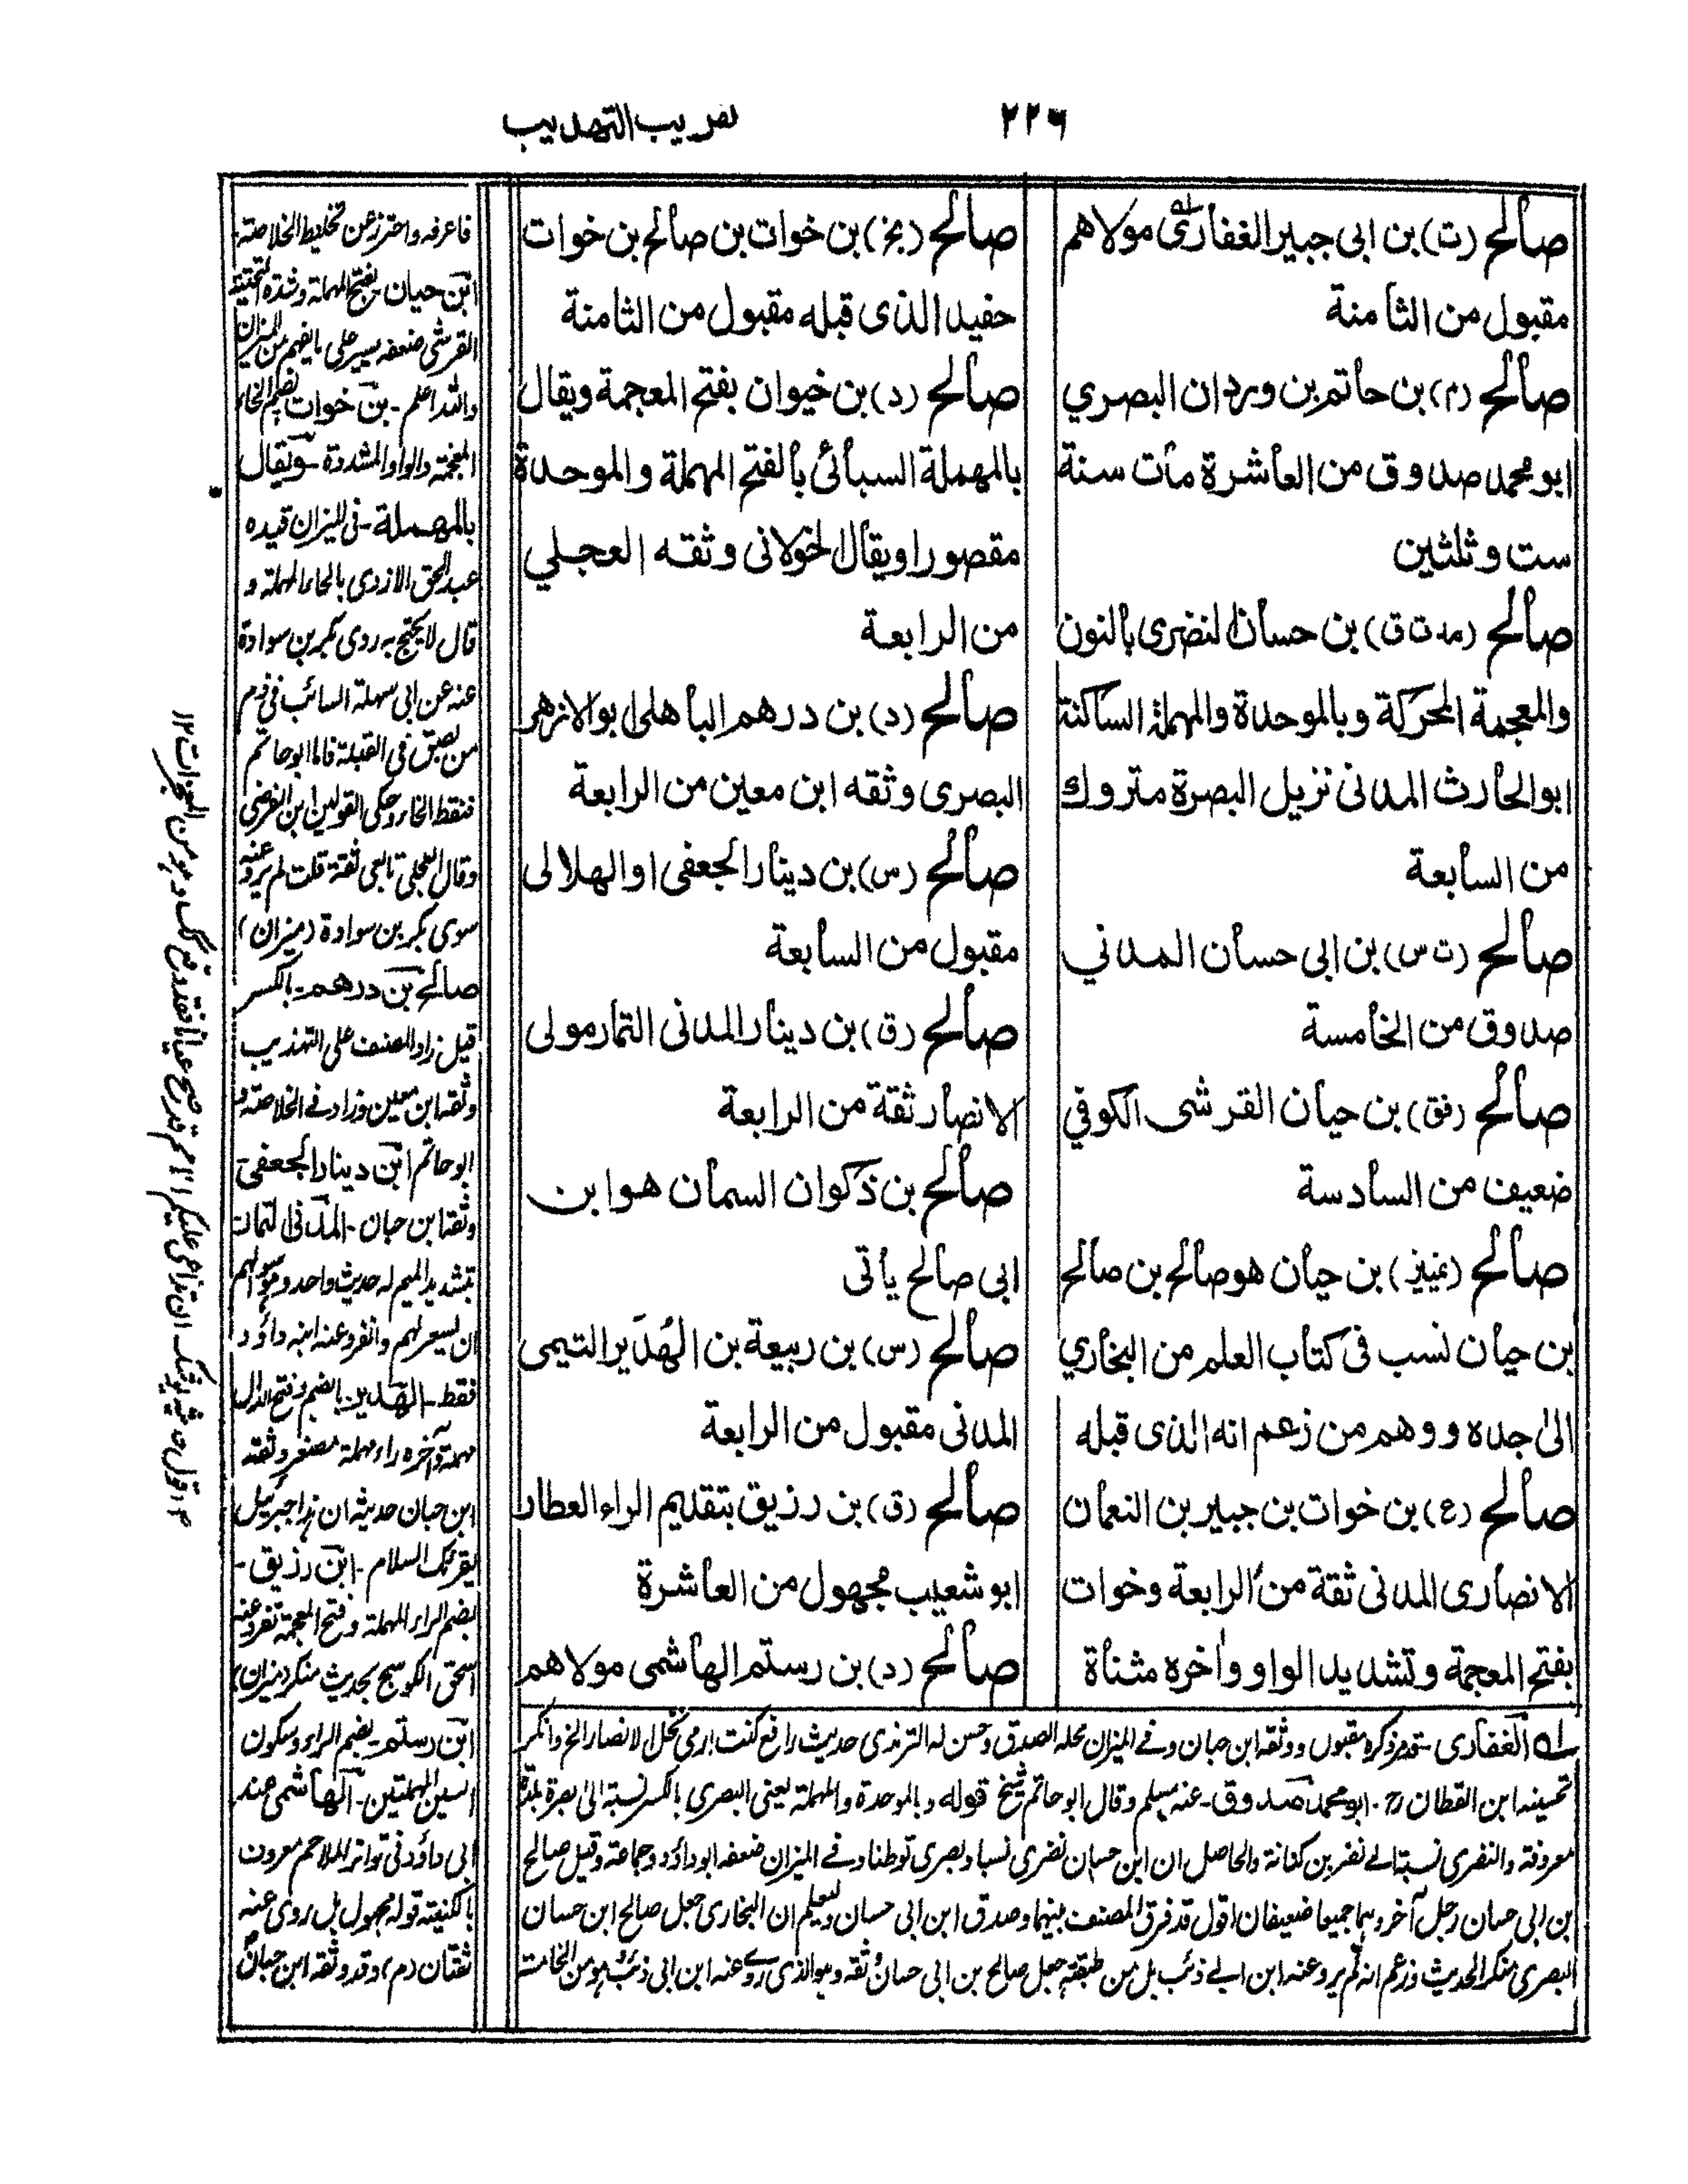 ٢٢٦
تقريب التهذيب
صالح (ت) بن ابى جبير الغفارى مولاهم
مقبول من الثامنة
صالح (م) بن حاتم بن وردان البصري
ابو محمد صدوق من العاشرة مات سنة
ست وثلثين
صالح (مد ت ق) بن حسان النضرى بالنون
والمعجمة المحركة وبالموحدة والمهملة الساكنة
ابو الحارث المدنى نزيل البصرة متروك
من السابعة
صالح (ت س) بن ابى حسان المدني
صدوق من الخامسة
صالح (فق) بن حيان القرشى الكوفي
ضعيف من السادسة
صالح (تمييز) بن حيان هو صالح بن صالح
بن حيان نسب فى كتاب العلم من البخاري
الى جده ووهم من زعم انه الذى قبله
صالح (ع) بن خوات بن جبير بن النعمان
الانصارى المدنى ثقة من الرابعة وخوات
بفتح المعجمة وتشديد الواو واخره مثناة
صالح (بخ) بن خوات بن صالح بن خوات
حفيد الذى قبله مقبول من الثامنة
صالح (د) بن خيوان بفتح المعجمة ويقال
بالمهملة السبائى بالفتح المهملة والموحدة
مقصورا ويقال الخولانى وثقه العجلي
من الرابعة
صالح (د) بن درهم الباهلى ابو الازهر
البصرى وثقه ابن معين من الرابعة
صالح (س) بن دينار الجعفى او الهلالى
مقبول من السابعة
صالح (ق) بن دينار المدنى التمار مولى
الانصار ثقة من الرابعة
صالح بن ذكوان السمان هو ابن
ابى صالح يأتى
صالح (س) بن ربيعة بن الهُدَير التيمى
المدنى مقبول من الرابعة
صالح (ق) بن رزيق بتقديم الراء العطار
ابو شعيب مجهول من العاشرة
صالح (د) بن رستم الهاشمى مولاهم
الغفارى - قدم ذكره مقبول ووثقه ابن حبان وفى الميزان محله الصدق وحسن له الترمذى حديث رافع كنت ارمى نخل الانصار الخ وانكر
تحسينه ابن القطان - ابو محمد صدوق - عنه مسلم وقال ابو حاتم شيخ قوله وبالموحدة والمهملة يعنى البصري بالكسر نسبة الى بصرة بلدة
معروفة والنضرى نسبة الى نضر بن كنانة والحاصل ان ابن حسان نضرى نسبا وبصرى توطنا وفى الميزان ضعفه ابو داؤد وجماعة وقيل صالح
بن ابى حسان رجل آخر وهما جميعا ضعيفان اقول قد فرق المصنف بينهما وصدق ابن ابى حسان وليعلم ان البخارى جعل صالح ابن حسان
البصرى منكر الحديث وزعم انه لم يرو عنه ابن ابى ذئب بل من طبقته جعل صالح بن ابى حسان ثقة وهو الذى روى عنه ابن ابى ذئب من الخامسة
فاعرفه واحترز عن تخليط الخلاصة -
ابن حيان - بفتح المهملة وشدة التحتية
القرشى ضعفه يسير على ما يفهم من الميزان
والله اعلم - بن خوات بضم الخاء
المعجمة والواو المشددة - ويقال
بالمهملة - فى الميزان قيده
عبد الحق الازدى بالحاء المهملة و
قال لا يحتج به روى بكر بن سوادة
عنه عن ابى سهلة السائب فى ذم
من بصق فى القبلة فاما ابو حاتم
فنقط الخاء وحكى القولين ابن الفرضى
وقال العجلى تابعى ثقة قلت لم يرو عنه
سوى بكر بن سوادة (ميزان)
صالح بن درهم - بالكسر
قيل زاد المصنف على التهذيب
وثقه ابن معين وزاد فى الخلاصة و
ابو حاتم ابن دينار الجعفى
وثقه ابن حبان - المدنى التمار
بتشديد الميم له حديث واحد
ان يسعر لهم وانفرد عنه ابنه داؤد
فقط - الهدير بالضم وفتح الدال
مهملة آخره راء مهملة مصغر وثقه
ابن حبان حديثه ان هذا جبريل
يقرئك السلام - ابن رزيق -
بضم الراء المهملة وفتح المعجمة تفرد عنه
اسحق الكوسج بحديث منكر (ميزان)
ابن رستم - بضم الراء وسكون
السين المهملتين - الهاشمى عند
ابى داؤد فى تواتر الملاحم معروف
بالكنية قوله مجهول بل روى عنه
ثقتان (م) وقد وثقه ابن حبان